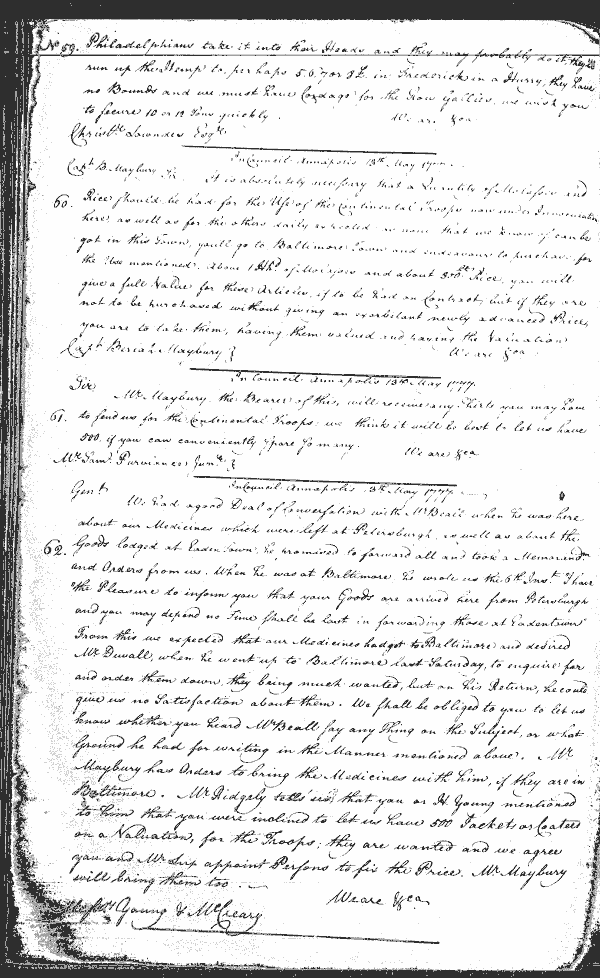 No 59. Philadelphians take it into their Heads and they may probably do it, they'll
run up the Hemp to perhaps 5. 6. 7 or 8£. in Frederick in a Hurry, they have
no Bounds and we must have Cordage for the Row Gallies, we wish you
to secure 10 or 12 Tons quickly. We are &ca
Christr. Lowndes Esqr.
In Council Annapolis 13th May 1777.
Capt. B. Maybury Sir. It is absolutely necessary that a Quantity of Molasses and
60. Rice should be had for the Use of the Continental Troops now under Innoculation
here, as well as for the others daily expected, as none that we know of can be
got in this Town, you'll go to Baltimore Town and endeavour to purchase for
the Use mentioned, about 1 Hhd. of Molasses and about Rice, you will
give a full Value for these Articles, if to be had on Contract, but if they are
not to be purchased without giving an exorbitant newly advanced Price,
you are to take them, having them valued and paying the Valuation
Capt. Beriah Maybury } We are &ca
In Council Annapolis 13th May 1777.
Sir
Mr. Maybury the Bearer of this, will receive any Shirts you may have
61. to send us for the Continental Troops; we think it will be best to let us have
500, if you can conveniently spare so many. We are &ca
Mr. Saml. Purviance, Junr. }
In Council Annapolis 13th May 1777.
Gent.
We had a good Deal of Conversation with Mr. Beall when he was here
about our Medicines which were left at Petersburgh, as well as about the
62. Goods lodged at Eaden Town, he promised to forward all and took a Memorandm
and Orders from us. When he was at Baltimore he wrote us the 6th Inst. "I have
"the Pleasure to inform you that your Goods are arrived here from Petersburgh
and you may depend no Time shall be lost in forwarding those at Eadentown"
From this we expected that our Medicines had got to Baltimore and desired
Mr. Duvall, when he went up to Baltimore last Saturday, to enquire for
and order them down, they being much wanted, but on his Return, he could
give us no Satisfaction about them. We shall be obliged to you to let us
know whether you heard Mr. Beall say any Thing on the Subject, or what
Ground he had for writing in the Manner mentioned above. Mr.
Maybury has Orders to bring the Medicines with him, if they are in
Baltimore. Mr. Ridgely tells us, that you or H Young mentioned
to him that you were inclined to let us have 500 Jackets or Coatees
on a Valuation, for the Troops; they are wanted and we agree
you and Mr. Lux appoint Persons to fix the Price. Mr. Maybury
will bring them too.
We are &ca
Messrs. Young & McCreary